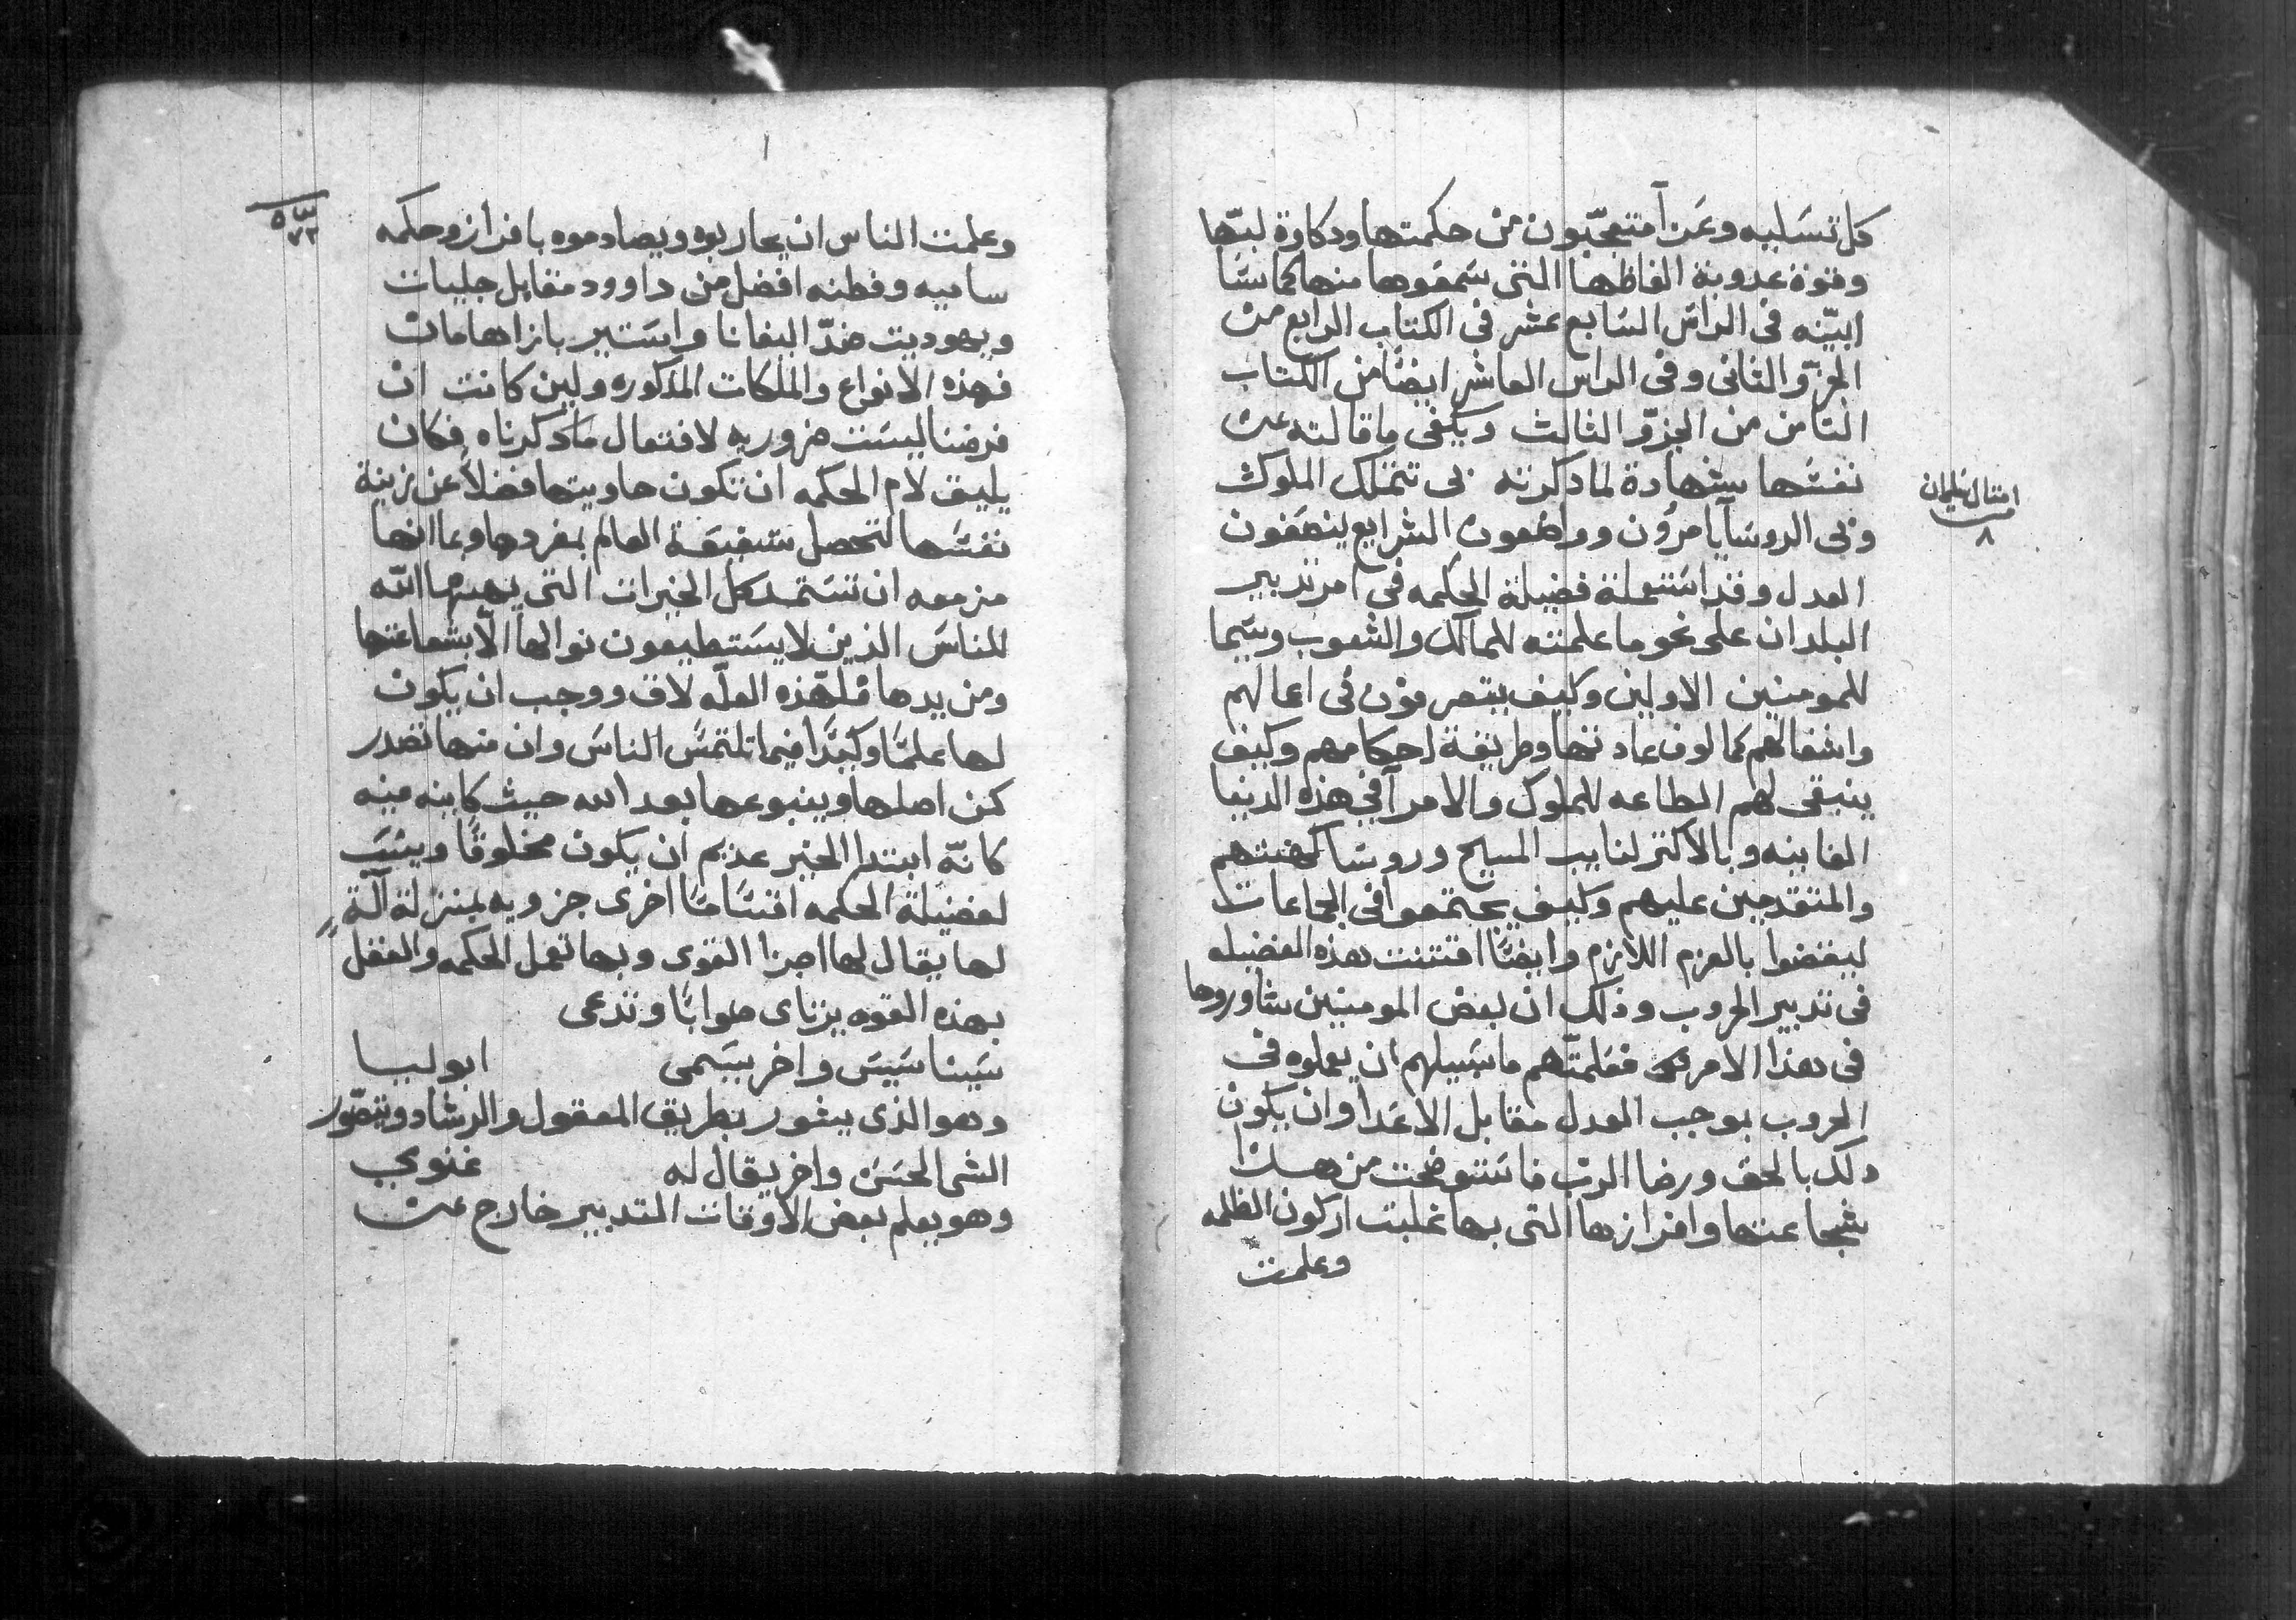 كل تسليه وعَزآ متعجّبون من حكمتها ودكاوة لبّها
وقوة عدوبة الفاظها التى سَمعَوها منها كما سَنَا
ابيّنه فى الراس السَابع عشر فى الكتاب الرابع من
الجزوّ الثانى وفى الراس العاشر ايضًا من الكتاب
الثامن من الجزوّ الثالث ويكفى ما قالته عن
نفسَها شهادة لما دكرته بى تتملك الملوك
وبى الروسَآ يامرُون وواضعون الشرايع ينصَفون
امتال سليمان
٨
العدل وقد اسَتعملة فضيلة الحكمه فى امر تدبير
البلدان على نحو ما علمته للممالك والشعوب وسَيما
للمومنين الاولين وكيف يتصرفون فى اعمالهم
واشغالهم كمالوف عادتها وطريقة احكامهم وكيف
ينبقى لهم الطاعه للملوك والامرآ فى هذه الدنيا
الفانيه وبالاكتر لنايب المسيح وروسَا كهنتهم
والمتقدمين عليهم وكيف يجتمعوا فى الجماعات
ليفضوا بالعزم اللازم وايضًا اقتنت بهذه الفضيله
فى تدبير الحروب وذلك ان بعض المومنين شاوروها
فى هذا الامر فعَلمتّهم ما سَبيلهم ان يعملوه فى
الحروب بموجب العدل مقابل الاعَدا وان يكون
دلك بالحق ورضا الربّ فاسَتوضحت من هذا
شجاعتها وافرازها التى بها غلبت اركون الظلمه
وعلمت
٥٧٣
وعلمت الناس ان يحاربوه ويصادموه بافراز وحكمه
ساميه وفطنه افضل من داوود مقابل جليات
ويهوديت ضدّ اليفانا واسَتير بازا هامان
فهذه الانواع والملكات المذكوره ولين كانت ان
فرضنا ليسَت ضروريه لافتعال ما دكرناه فكان
يليق لام الحكمه ان تكون حاويتها فضلاً عن زينة
نفسَها لتحصل شفيقة العالم بمفردها وبما انها
مزمعه ان تسَتمد كل الخيرات التى يهبها الله
للناسَ الذين لا يسَتطيعون نوالها الّا بشفاعتها
ومن يدها فلهّذه العلّه لاق ووجب ان يكون
لها علمًا وكيدًا فيما تلتمسَ الناسَ وان منها تصدر
كمن اصلها وينبوعها بعد الله حيث كاينه فيه
كانّه ابتدا الخير عديم ان يكون مخلوقًا وينسَب
لفضيلة الحكمه اقسَامًا اخرى جزويه بمنزلة آلةٍ
لها يقال لها اجزا القوى وبها تعمل الحكمه والعقل
بهذه القوه يرتاى صوابًا وتدعى
سَيناسَيسَ واخر يسَمى ابوليا
وهو الذى يشور بطريق المعقول والرشاد ويتصّور
الشى الحسَن واخر يقال له غنومي
وهو يعلم بعض الاوقات التدبير خارج عن